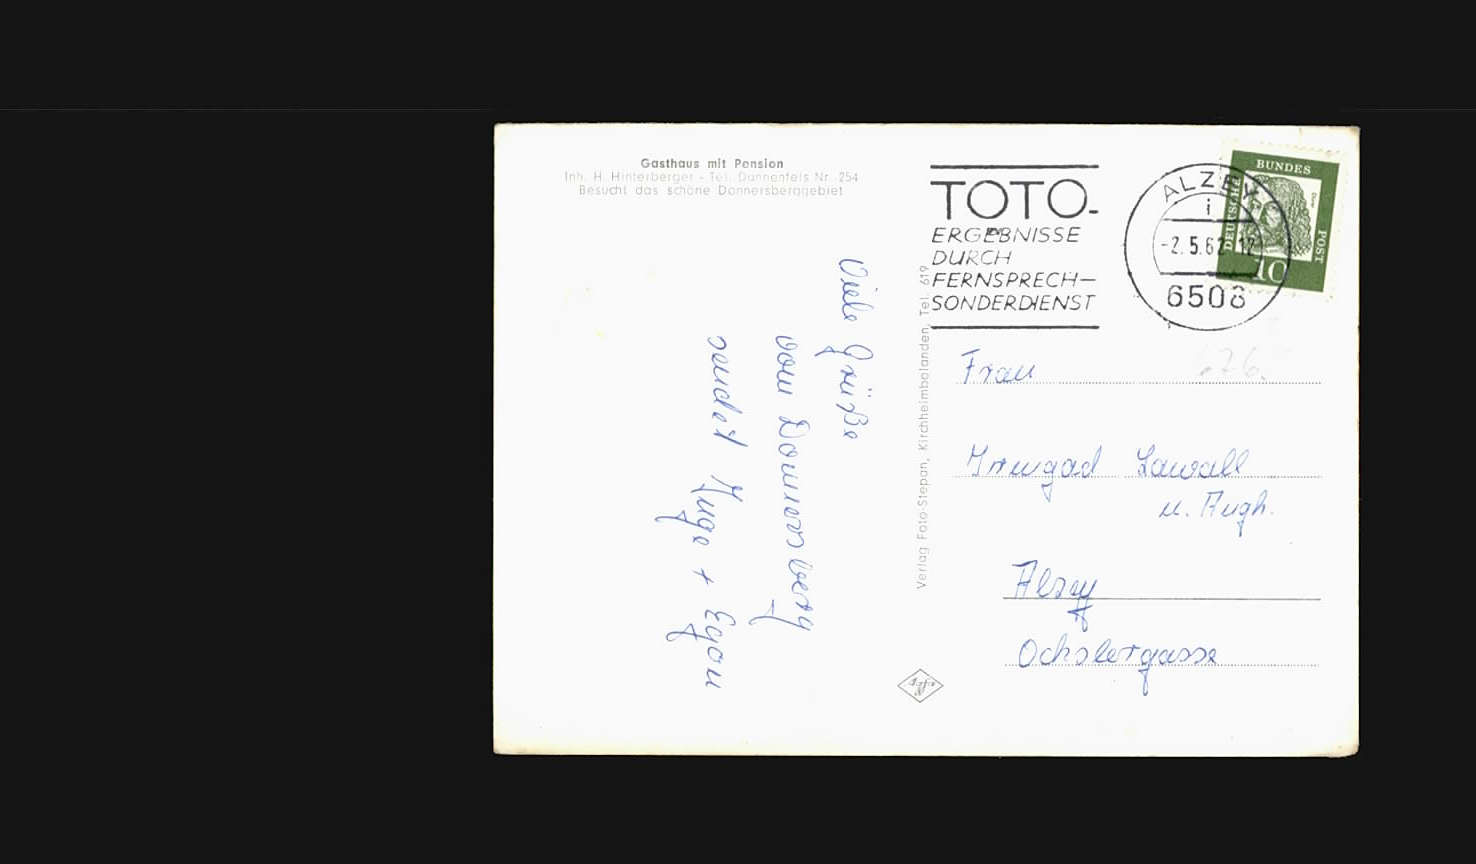 Gasthaus mit Pension
Inh. H. Hinterberger - Tel. Dannenfels Nr. 254
Besucht das schöne Donnersberggebiet
Viele Grüße
vom Donnersberg
sendet Hugo + Egon
Verlag Foto-Stepan, Kirchheimbolanden, Tel. 619
TOTO-
ERGEBNISSE
DURCH
FERNSPRECH-
SONDERDIENST
ALZEY
i
-2.5.62-12
6508
DEUTSCHE
BUNDES
POST
10
Frau
Irmgad Lawall
u. Angh.
Alzey
Agfa